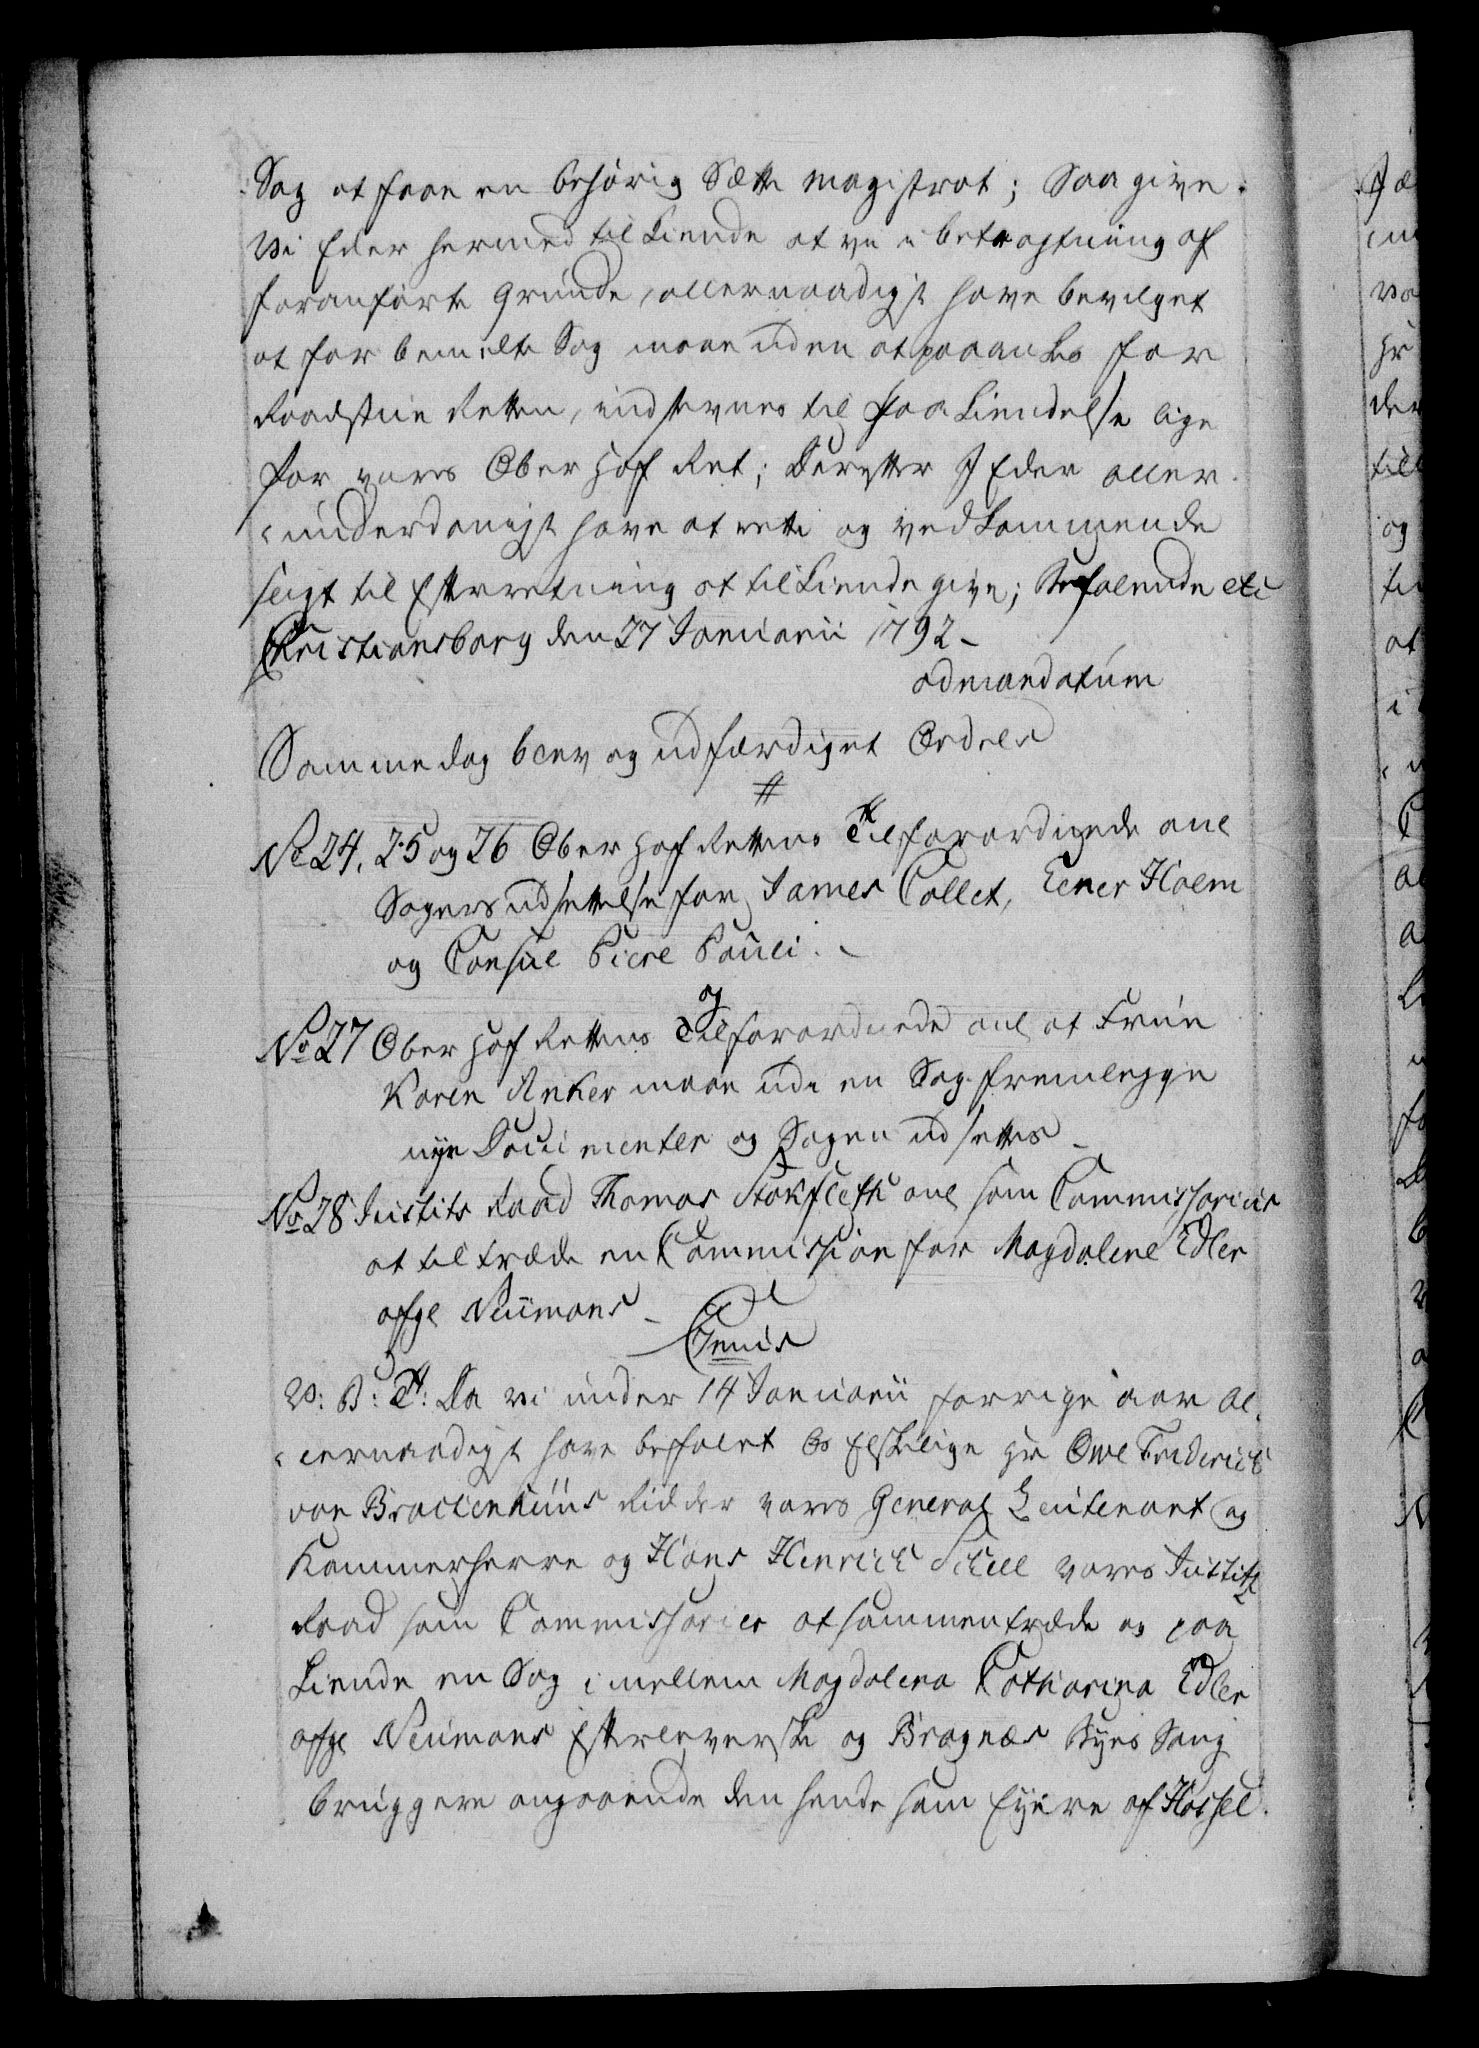 Sag at faae en behørig Sætte Magistrat; Saa give
Vi Eder hermed til kiende at vi i betragtning af
foranførte Grunde, allernaadigst have bevilget
at for bemelte Sag maae uden at paaankes for
Raadstue Retten, indstevnes til Paakiendelse lige
for vores Ober Hof Ret; Derefter I Eder aller
underdanigst have at rette og vedkommende
sligt til Efterretning at tilkiende give; Befalende etc
Christiansborg den 27 Januarii 1792
admandatum
Samme dag blev og udfærdiget Ordres
#
No 24, 25 og 26 Ober Hof Rettens Tilforordnede anl
Sagers udsettelse for James Collet, Ener Holm
og Consul Piere Pauli.
og
No 27 Ober Hof Rettens Tilforordnede anl at Frue
Karen Anker maae udi en Sag fremlegge
nye Documenter og Sagen udsettes
No 28 Justits Raad Thomas Stokfleth anl som Commissarius
at tiltræde en Commission for Magdalene Edler
afge Neumans
Genis
V: B: T: Da vi under 14 Januarii forrige aar al
lernaadigst have befalet Os Elskelige Hr Owe Friderich
von Brockenhuus Ridder vores General Leutenant og
Kammerherre og Hans Henrich Scheel vores Justitz
Raad som Commissarier at sammentræde og paa
kiende en Sag imellem Magdalena Catharina Edler
afge Neumans Efterleverske og Bragnæs Byes Saug
bruggere angaaende den hende som Eyere af Hassel